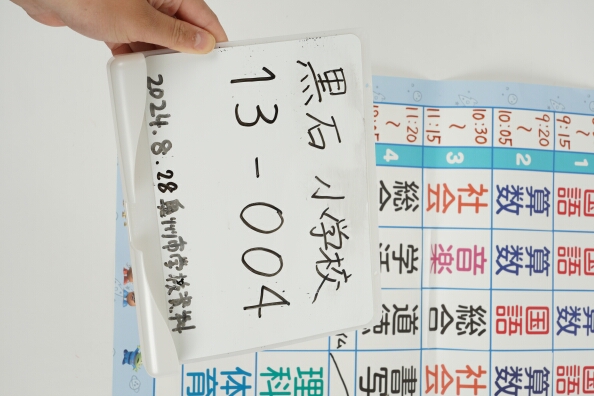 黒石 小学校
13-004
2024.8.28 奥州市学校資料
9:15
1 国語 国語 算数 国語
9:20
~
10:05
2 算数 算数 国語 算数
10:30
~
11:15
3 社会 音楽 総合 社会
11:20
~
4 総合 学活 道徳 書写
理科
体育